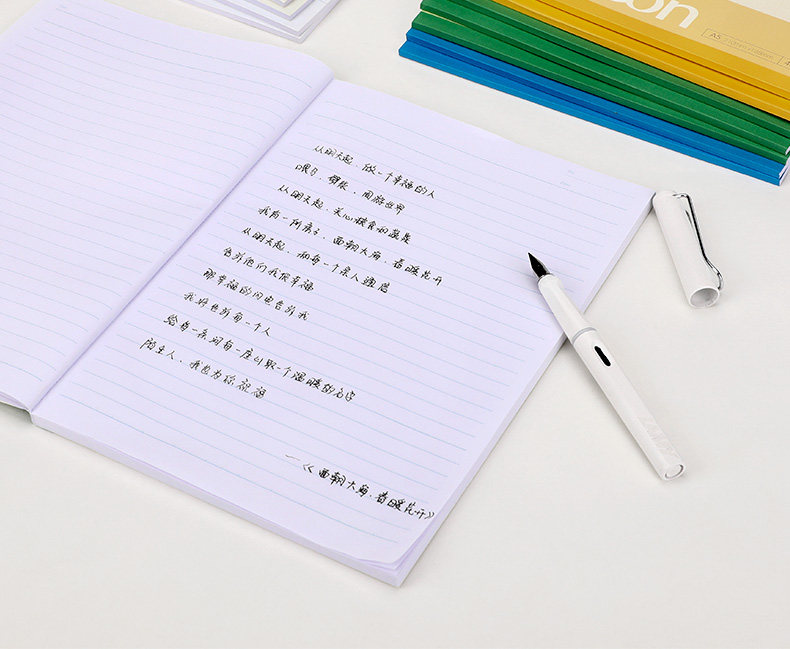 从明天起，做一个幸福的人
喂马，劈柴，周游世界
从明天起，关心粮食和蔬菜
我有一所房子，面朝大海，春暖花开
从明天起，和每一个亲人通信
告诉他们我很幸福
那幸福的闪电告诉我
我将告诉每一个人
给每一条河每一座山取一个温暖的名字
陌生人，我也为你祝福
—《面朝大海，春暖花开》
on
A5